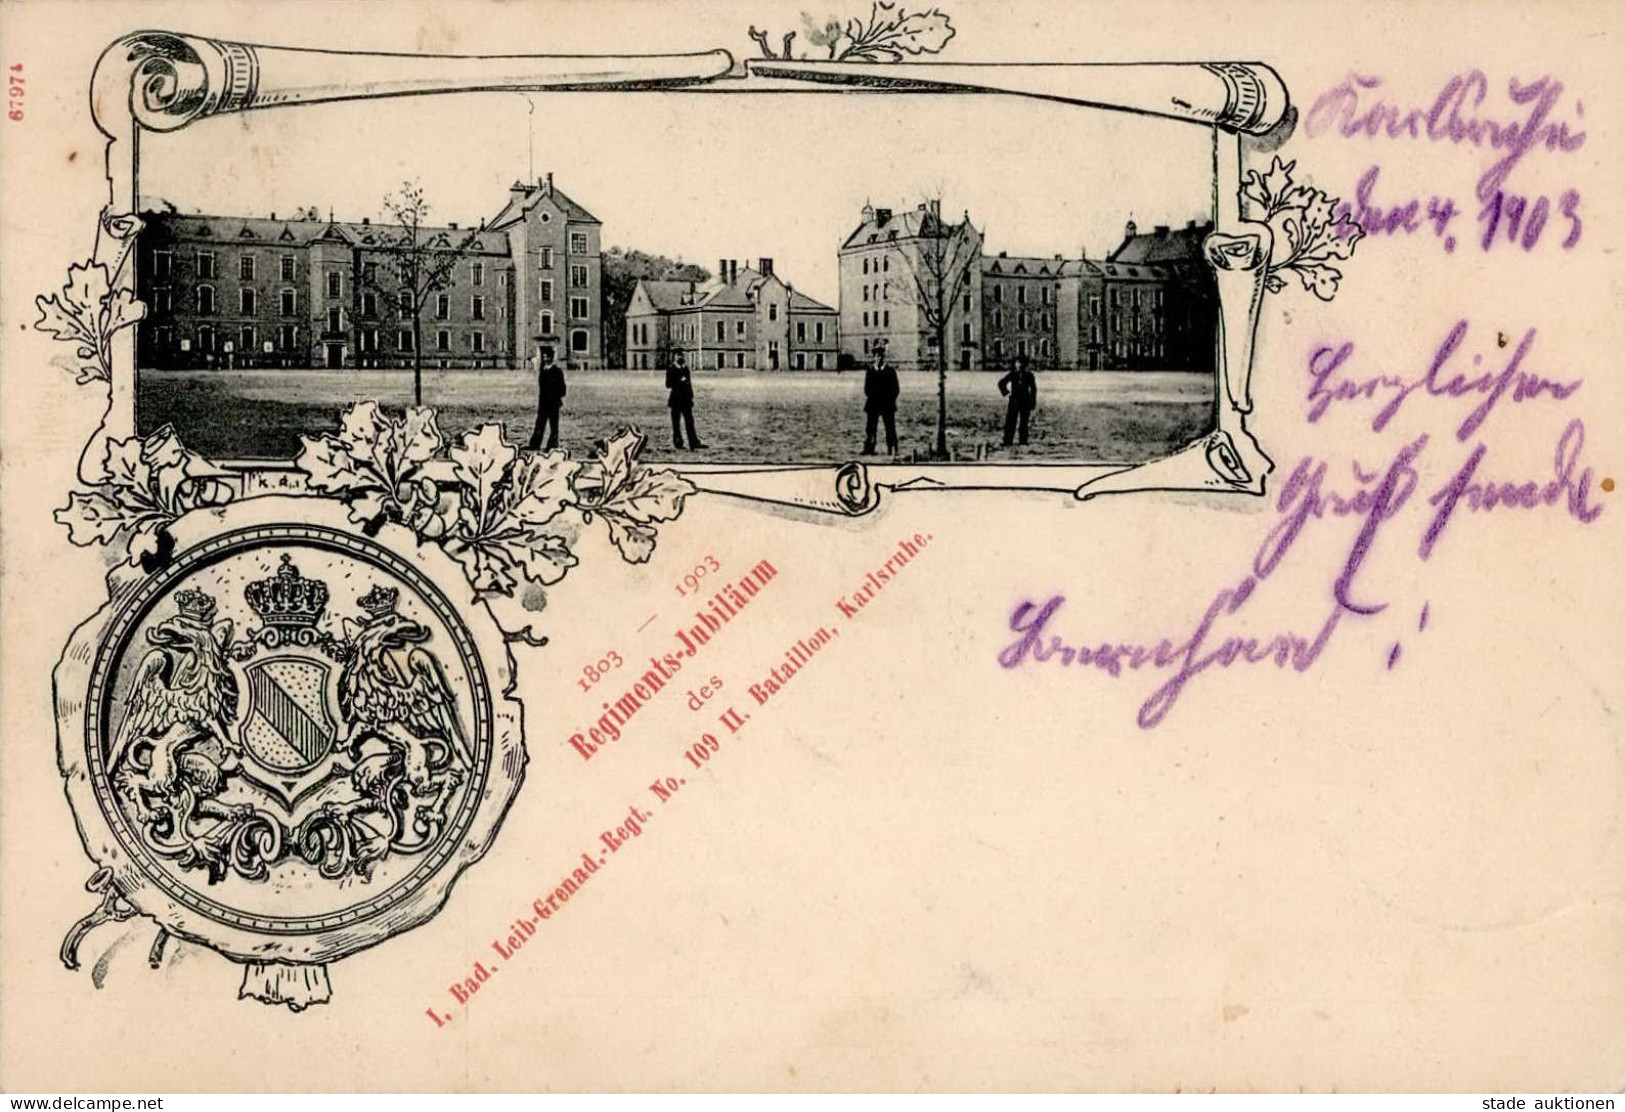 67974
Karlsruhe
den 4. 1903
Herzlichen
Gruß sendet
Bernhard !
1803 — 1903
Regiments-Jubiläum
des
1. Bad. Leib-Grenad.-Regt. No. 109 II. Bataillon, Karlsruhe.
www.delcampe.net
stade auktionen